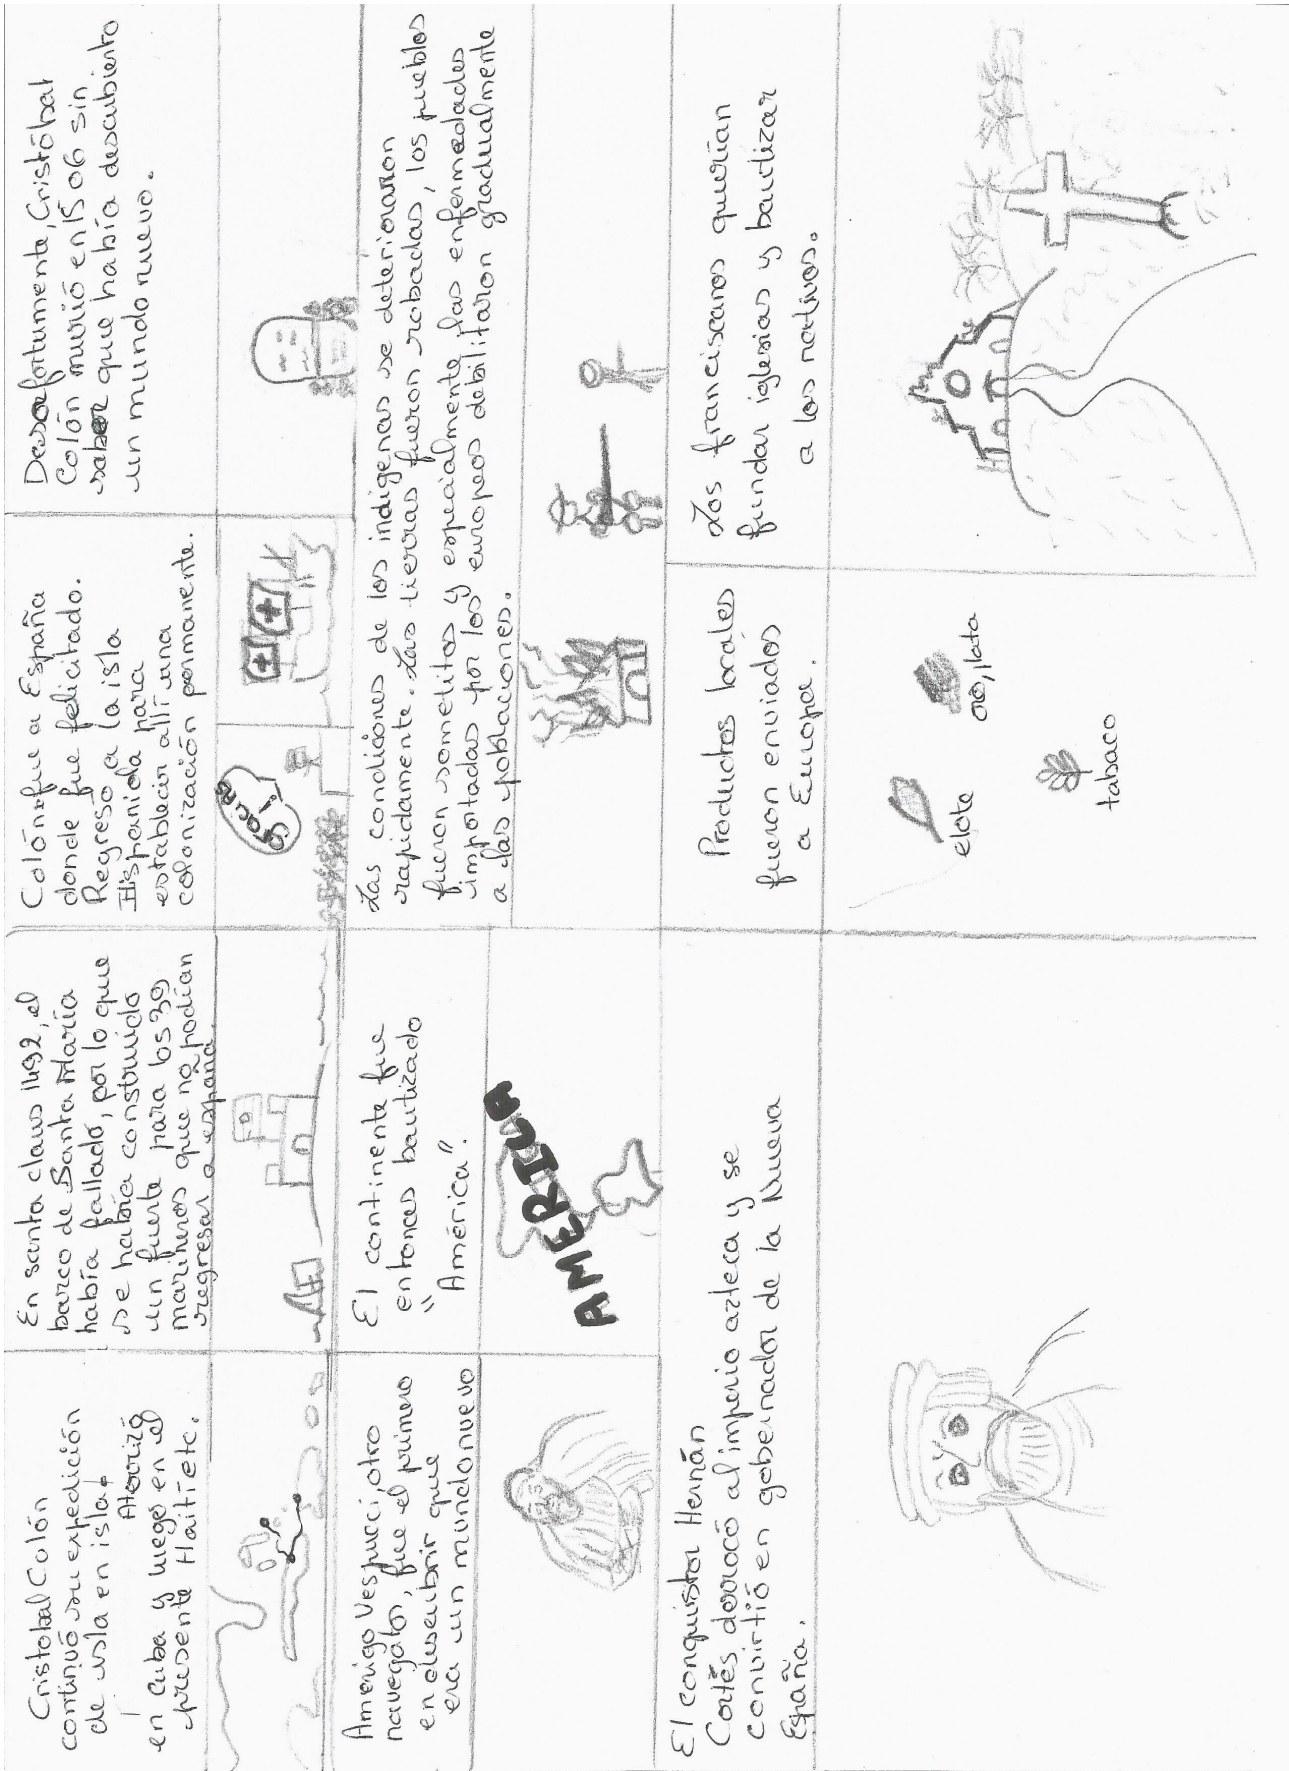 Cristobal Colón
continuó su expedición
de isla en isla.
Aterrizó
en Cuba y luego en el
presente Haití etc.
En santa claus 1492, el
barco de Santa María
había fallado, por lo que
se había construido
un fuerte para los 39
marineros que no podían
regresar a españa.
Colón fue a España
donde fue felicitado.
Regresó a la isla
Hispaniola para
establecir allí una
colonización permanente.
gracias
!
Desafortumente, Cristóbal
Colón murió en 1506 sin
saber que había descubierto
un mundo nuevo.
Amerigo Vespucci, otro
navegator, fue el primero
en descubrir que
era un mundo nuevo
El continente fue
entonces bautizado
"América".
AMERICA
Las condiciones de los indigenas se deterioraron
rapidamente. Las tierras fueron robadas, los pueblos
fueron sometitos y especialmente las enfermedades
importadas por los europeos debilitaron gradualmente
a las poblaciones.
El conquistor Hernán
Cortés derrocó al imperio azteca y se
convirtió en gobernador de la Nueva
España.
Productos locales
fueron enviados
a Europa.
elote
oro, plata
tabaco
Los franciscanos querían
fundar iglesias y bautizar
a los nativos.